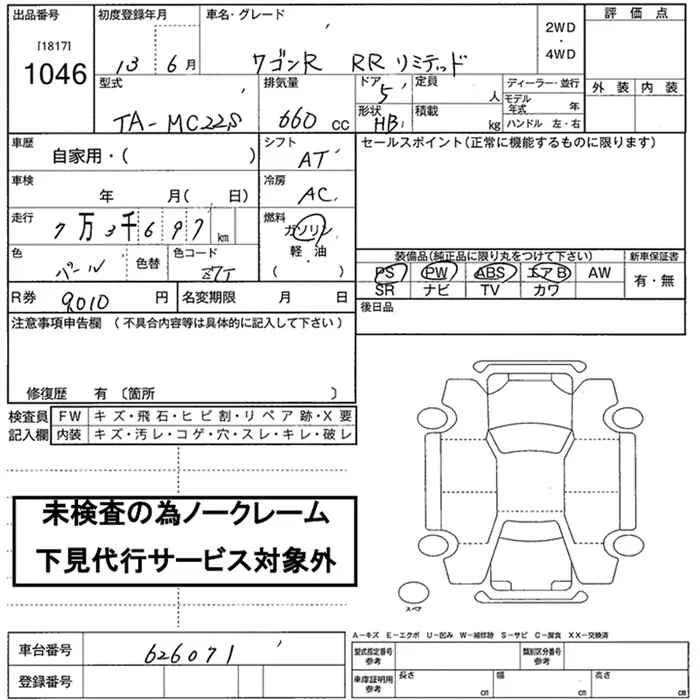 出品番号 初度登録年月 車名・グレード 評価点
[1817] 2WD・4WD
1046 13 6月 ワゴンR RRリミテッド
型式 排気量 ドア 5 定員 人 ディーラー・並行 外装 内装
TA-MC22S 660cc 形状 HB 積載 kg モデル年式 年
ハンドル 左・右
車歴 自家用・( ) シフト AT セールスポイント(正常に機能するものに限ります)
車検 年 月( 日) 冷房 AC
走行 7万3千697km 燃料 ガソリン
軽・油
( )
色 パール 色替 色コード 装備品(純正品に限り丸をつけて下さい) 新車保証書
PS PW ABS エアB AW 有・無
R券 9010円 名変期限 月 日 SR ナビ TV カワ
注意事項申告欄(不具合内容等は具体的に記入して下さい) 後日品
修復歴 有 〔箇所 〕
検査員 FW キズ・飛石・ヒビ割・リペア跡・X要
記入欄 内装 キズ・汚レ・コゲ・穴・スレ・キレ・破レ
未検査の為ノークレーム
下見代行サービス対象外
スペア
A-キズ E-エクボ U-凹み W-補修跡 S-サビ C-腐食 XX-交換済
車台番号 626071 型式指定番号 参考 類別区分番号 参考
登録番号 車庫証明用 参考 長さ cm 幅 cm 高さ cm